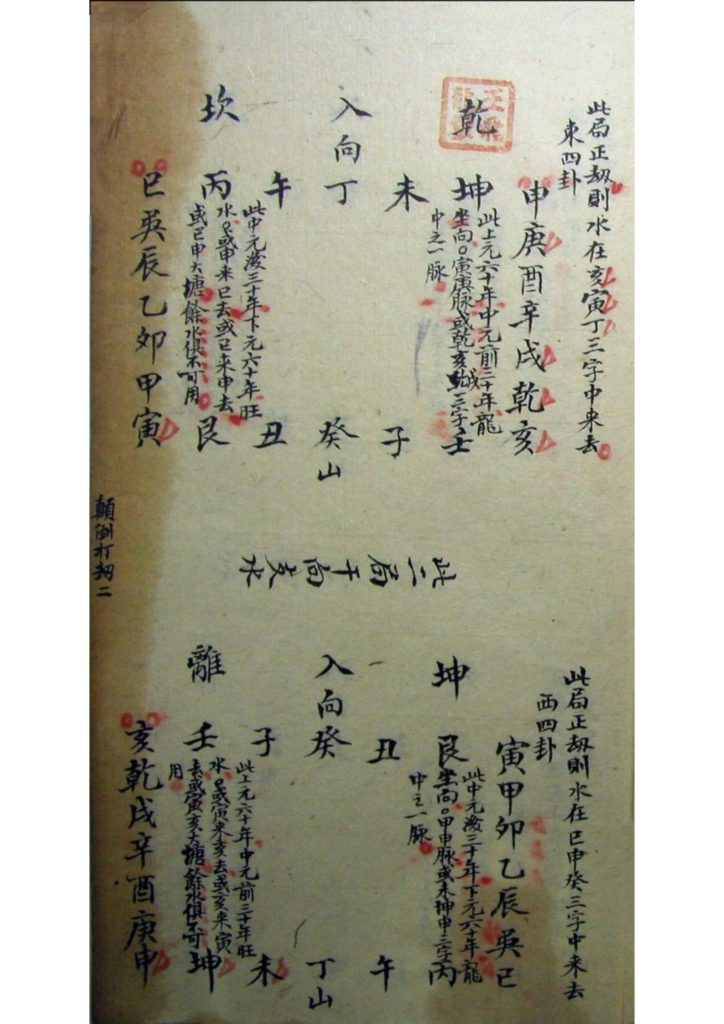 此局正劫則水在亥寅丁三字中來去
東四卦
申庚酉辛戌乾亥
乾
坤
此上元六十年中元前三十年龍
坐向。寅庚脉或乾亥三字
中之一脉
壬
未
子
入向丁
癸山
午
丑
坎
丙
此中元後三十年下元六十年旺
水。或申來巳去或巳來申去
或巳申大塘餘水俱不可用
艮
巳巽辰乙夘甲寅
顛倒打劫二
此二局干向支水
此局正劫則水在巳申癸三字中來去
西四卦
寅甲卯乙辰巽巳
坤
艮
此中元後三十年下元六十年龍
坐向。甲申脉或未坤申三字
中之一脉
丙
丑
午
入向癸
丁山
子
未
離
壬
此上元六十年中元前三十年旺
水。或寅來亥去或亥來寅
去或寅亥大塘餘水俱不可
用
坤
亥乾戌辛酉庚申